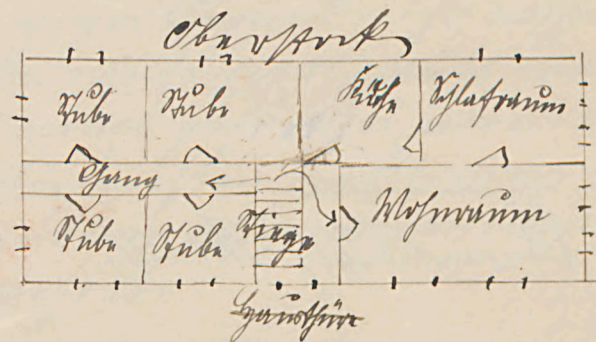 Oberstock
Stube Stube Küche Schlafraum
Gang
Stube Stube Stiege Wohnraum
Hausthüre